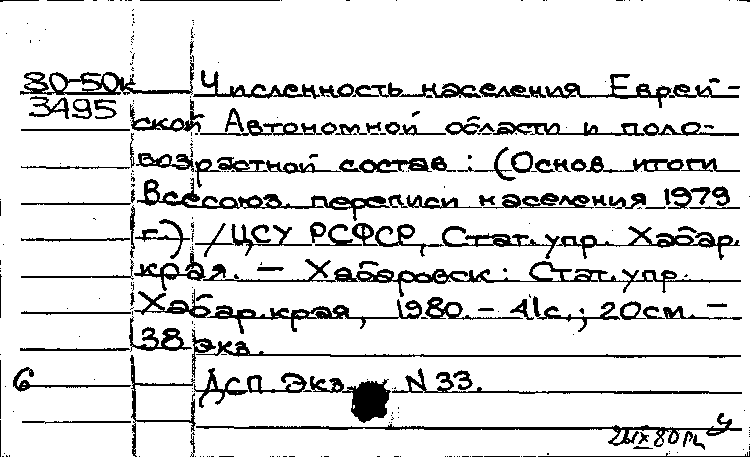 80-50к Численность населения Еврей-
3495
ской Автономной области и поло-
возрастной состав : (Основ. итоги
Всесоюз. переписи населения 1979
г.) /ЦСУ РСФСР, Стат. упр. Хабар.
края. — Хабаровск : Стат. упр.
Хабар. края, 1980. - 41с.; 20см. —
38 экз.
6 ДСП. Экз. N 33.